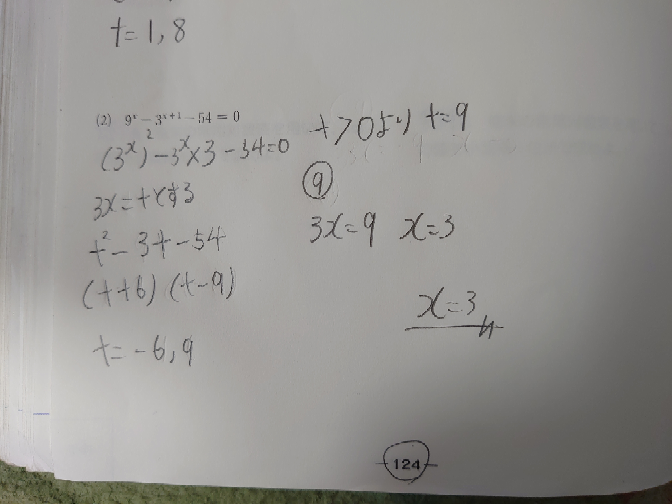 t=1,8
(2) 9ˣ−3ˣ⁺¹−54=0
(3ˣ)²−3ˣ×3−54=0
3x=tとする
t²−3t−54
(t+6)(t−9)
t=−6,9
t>0より t=9
⑨
3x=9 x=3
x=3
124